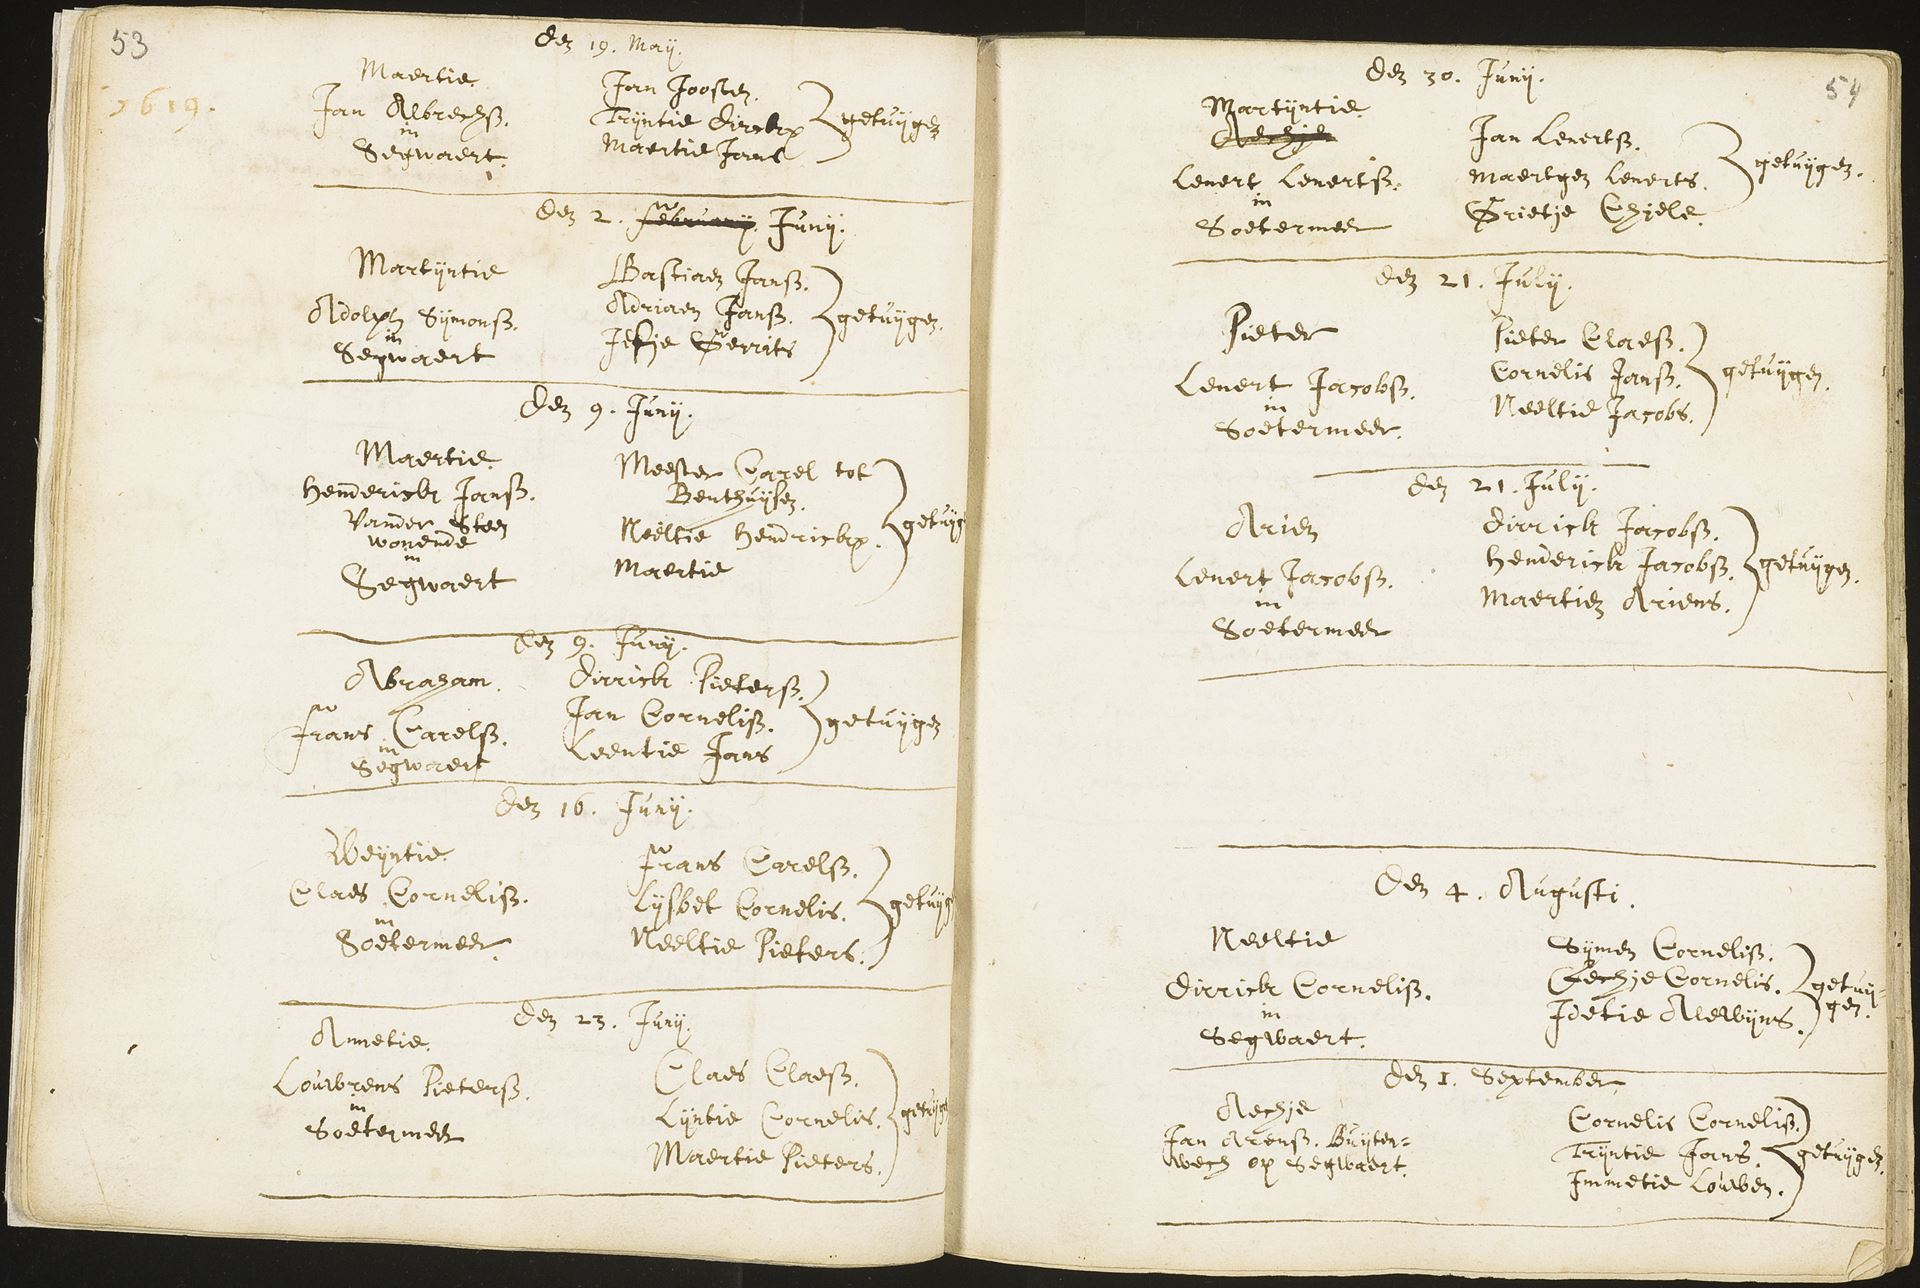 53
1619.
den 19. Maij.
Maertie.
Jan Albrechß.
in
Segwaert.
Jan Joosten.
Trijntie Dircks
Maertie Jans
getuijgen
den 2. februarij. Junij.
Martijntie
Adolph Sijmonß.
in
Segwaert
Bastiaen Janß.
Adriaen Janß.
Gerrits
getuijgen.
den 9. Junij.
Maertie.
Henderick Janß.
Vander Steen
wonende
in
Segwaert
Meester Carel tot
Benthuijsen.
Neeltie Hendricks.
Maertie
getuijg
den 9. Junij.
Abraham.
frans Carelß.
in
Segwaert
Dirrick Pieterß.
Jan Corneliß.
Leentie Jans
getuijgen
den 16. Junij.
Weijntie.
Claes Corneliß.
in
Soetermeer.
frans Carelß.
Lijsbet Cornelis.
Neeltie Pieters.
getuijg
den 23. Junij.
Annetie.
Louwrens Pieterß.
in
Soetermeer
Claes Claesß.
Lijntie Cornelis.
Maertie Pieters.
getuijg
54
den 30. Junij.
Martijntie.
Aechje
Lenert Lenertß.
in
Soetermeer
Jan Lenertß.
Maertgen Lenerts.
Grietje Chiele.
getuijgen.
den 21. Julij.
Pieter
Lenert Jacobß.
in
Soetermeer.
Pieter Claesß.
Cornelis Janß.
Neeltie Jacobs.
getuijgen.
den 21. Julij.
Arien
Lenert Jacobß.
in
Soetermeer
Dirrick Jacobß.
Henderick Jacobß.
Maertien Ariens.
getuijgen.
den 4. Augusti.
Neeltie
Dirrick Corneliß.
in
Segwaert.
Sijmen Corneliß.
Cornelis.
Idetie Alewijns.
getuij-
gen.
den 1. September
Aechje
Jan Arenß. Buijten=
wech op Segwaert.
Cornelis Corneliß.
Trijntie Jans.
Immetie Louwen.
getuijgen.